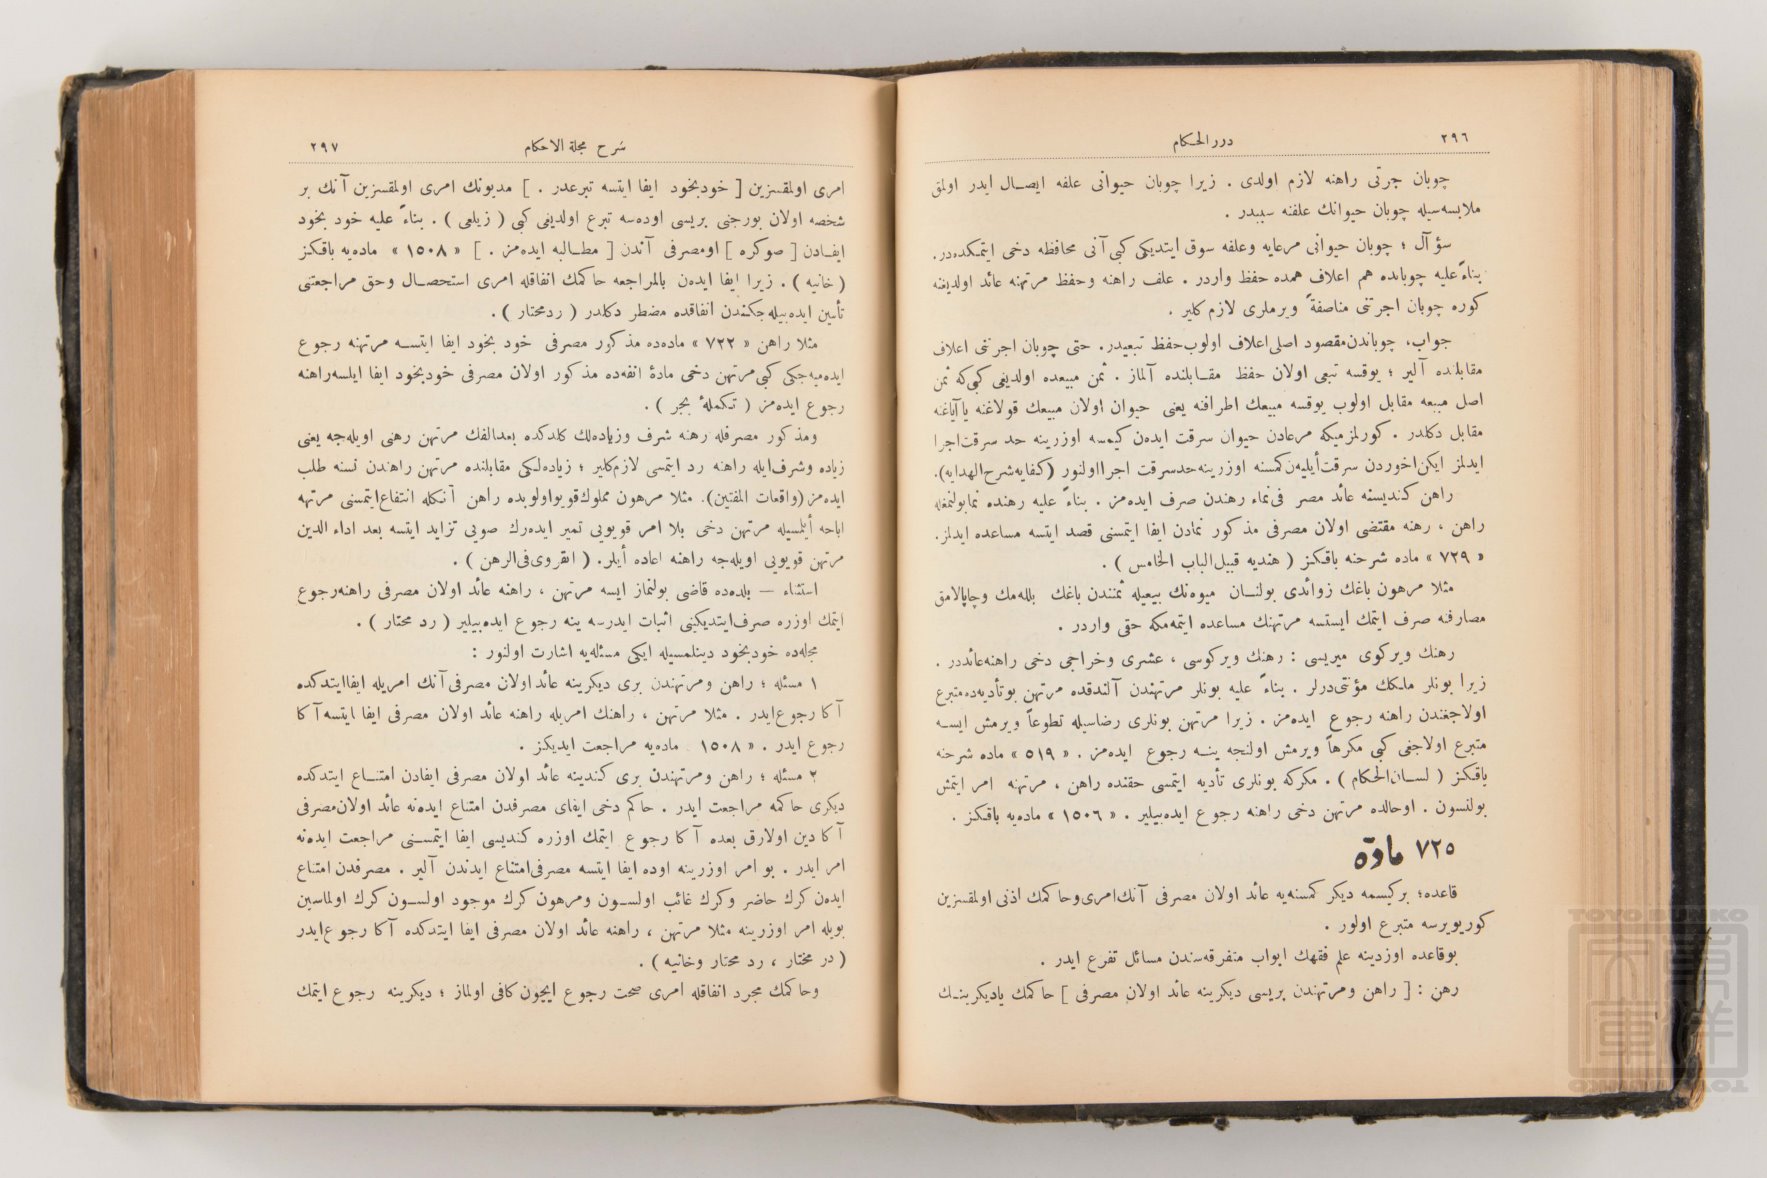 ٢٩٦
درر الحكام
چوبان چرتی راهنه لازم اولدی . زیرا چوبان حیوانی علفه ایصال ایدر اولمق
ملابسه‌سیله چوبان حیوانك علفنه سببدر .
سؤآل ؛ چوبان حیوانی مرعایه وعلفه سوق ایتدیکی کبی آنی محافظه دخی ایتمکده‌در.
بناءً علیه چوبانده هم اعلاف همده حفظ واردر . علف راهنه وحفظ مرتهنه عائد اولدیغنه
کوره چوبان اجرتنی مناصفةً ویرملری لازم کلیر .
جواب، چوباندن مقصود اصلی اعلاف اولوب حفظ تبعیدر. حتی چوبان اجرتنی اعلاف
مقابلنده آلیر ؛ یوقسه تبعی اولان حفظ مقابلنده آلماز . ثمن مبیعده اولدیغی کبی که ثمن
اصل مبیعه مقابل اولوب یوقسه مبیعك اطرافنه یعنی حیوان اولان مبیعك قولاغنه یا آیاغنه
مقابل دکلدر . کورلمزمیکه مرعادن حیوان سرقت ایده‌ن کیمسه اوزرینه حد سرقت اجرا
ایدلمز ایکن اخوردن سرقت أیلیه‌ن کمسنه اوزرینه حد سرقت اجرا اولنور (کفایه شرح الهدایه).
راهن کندیسنه عائد مصرفی نماء رهندن صرف ایده‌مز . بناءً علیه رهنده نما بولنمغله
راهن ، رهنه مقتضی اولان مصرفی مذکور نمادن ایفا ایتمسنی قصد ایتسه مساعده ایدلمز.
« ٧٢٩ » ماده شرحنه باقکز ( هندیه قبیل الباب الخامس ) .
مثلا مرهون باغك زوائدی بولنان میوه‌نك بیعیله ثمنندن باغك بلله‌مك وچاپالامق
مصارفنه صرف ایتمك ایستسه مرتهنك مساعده ایتمه‌مکه حقی واردر .
رهنك ویرکوی میریسی : رهنك ویرکوسی ، عشری وخراجی دخی راهنه عائددر .
زیرا بونلر ملکك مؤنتی‌درلر . بناءً علیه بونلر مرتهندن آلندقده مرتهن بو تأدیه‌ده متبرع
اولاجغندن راهنه رجوع ایده‌مز . زیرا مرتهن بونلری رضاسیله تطوعاً ویرمش ایسه
متبرع اولاجغی کبی مکرهاً ویرمش اولنجه ینه رجوع ایده‌مز . « ٥١٩ » ماده شرحنه
باقکز ( لسان الحکام ) . مکرکه بونلری تأدیه ایتمسی حقنده راهن ، مرتهنه امر ایتمش
بولنسون . او حالده مرتهن دخی راهنه رجوع ایده‌بیلیر . « ١٥٠٦ » ماده‌یه باقکز .
٧٢٥ مادّه
قاعده؛ بر کیسمه دیکر کمسنه‌یه عائد اولان مصرفی آنك امری وحاکمك اذنی اولمقسزین
کوریویرسه متبرع اولور .
بو قاعده اوزدینه علم فقهك ابواب متفرقه‌سندن مسائل تفرع ایدر .
رهن : [ راهن ومرتهندن بریسی دیکرینه عائد اولان مصرفی ] حاکمك یا دیکرینك
شرح مجلة الاحکام
٢٩٧
امری اولمقسزین [ خودبخود ایفا ایتسه تبرعدر . ] مدیونك امری اولمقسزین آنك بر
شخصه اولان بورجنی بریسی اوده‌سه تبرع اولدیغی کبی ( زیلعی ) . بناءً علیه خود بخود
ایفادن [ صوکره ] او مصرفی آندن [ مطالبه ایده‌مز . ] « ١٥٠٨ » ماده‌یه باقکز
( خانیه ) . زیرا ایفا ایده‌ن بالمراجعه حاکمك اتفاقله امری استحصال وحق مراجعتنی
تأمین ایده‌بیله‌جکندن انفاقده مضطر دکلدر ( رد محتار ) .
مثلا راهن « ٧٢٢ » ماده‌ده مذکور مصرفی خود بخود ایفا ایتسه مرتهنه رجوع
ایده‌میه‌جکی کبی مرتهن دخی مادهٔ انفه‌ده مذکور اولان مصرفی خودبخود ایفا ایلسه راهنه
رجوع ایده‌مز ( تکملهٔ بحر ) .
ومذکور مصرفله رهنه شرف وزیاده‌لك کلدکده بعد الفك مرتهن رهنی اویله‌جه یعنی
زیاده وشرف ایله راهنه رد ایتمسی لازم کلیر ؛ زیاده‌لکی مقابلنده مرتهن راهندن نسنه طلب
ایده‌مز (واقعات المفتین). مثلا مرهون مملوك قویو اولوبده راهن آنکله انتفاع ایتمسنی مرتهنه
اباحه أیلمسیله مرتهن دخی بلا امر قویویی تمیر ایده‌رك صویی تزاید ایتسه بعد اداء الدین
مرتهن قویویی اویله‌جه راهنه اعاده أیلر. ( انقروی فی الرهن ) .
استثناء — بلده‌ده قاضی بولنماز ایسه مرتهن ، راهنه عائد اولان مصرفی راهنه رجوع
ایتمك اوزره صرف ایتدیکنی اثبات ایدرسه ینه رجوع ایده‌بیلیر ( رد محتار ) .
مجله‌ده خودبخود دینلمسیله ایکی مسئله‌یه اشارت اولنور :
١ مسئله ؛ راهن ومرتهندن بری دیکرینه عائد اولان مصرفی آنك امریله ایفا ایتدکده
آکا رجوع ایدر . مثلا مرتهن ، راهنك امریله راهنه عائد اولان مصرفی ایفا ایتسه آکا
رجوع ایدر . « ١٥٠٨ ماده‌یه مراجعت ایدیکز .
٢ مسئله ؛ راهن ومرتهندن بری کندینه عائد اولان مصرفی ایفادن امتناع ایتدکده
دیکری حاکمه مراجعت ایدر . حاکم دخی ایفای مصرفدن امتناع ایده‌نه عائد اولان مصرفی
آکا دین اولارق بعده آکا رجوع ایتمك اوزره کندیسی ایفا ایتمسنی مراجعت ایده‌نه
امر ایدر . بو امر اوزرینه اوده ایفا ایتسه مصرفی امتناع ایدندن آلیر . مصرفدن امتناع
ایده‌ن کرك حاضر وکرك غائب اولسون ومرهون کرك موجود اولسون کرك اولماسین
بویله امر اوزرینه مثلا مرتهن ، راهنه عائد اولان مصرفی ایفا ایتدکده آکا رجوع ایدر
( در مختار ، رد محتار وخانیه ) .
وحاکمك مجرد انفاقله امری صحت رجوع ایچون کافی اولماز ؛ دیکرینه رجوع ایتمك
TOYO BUNKO